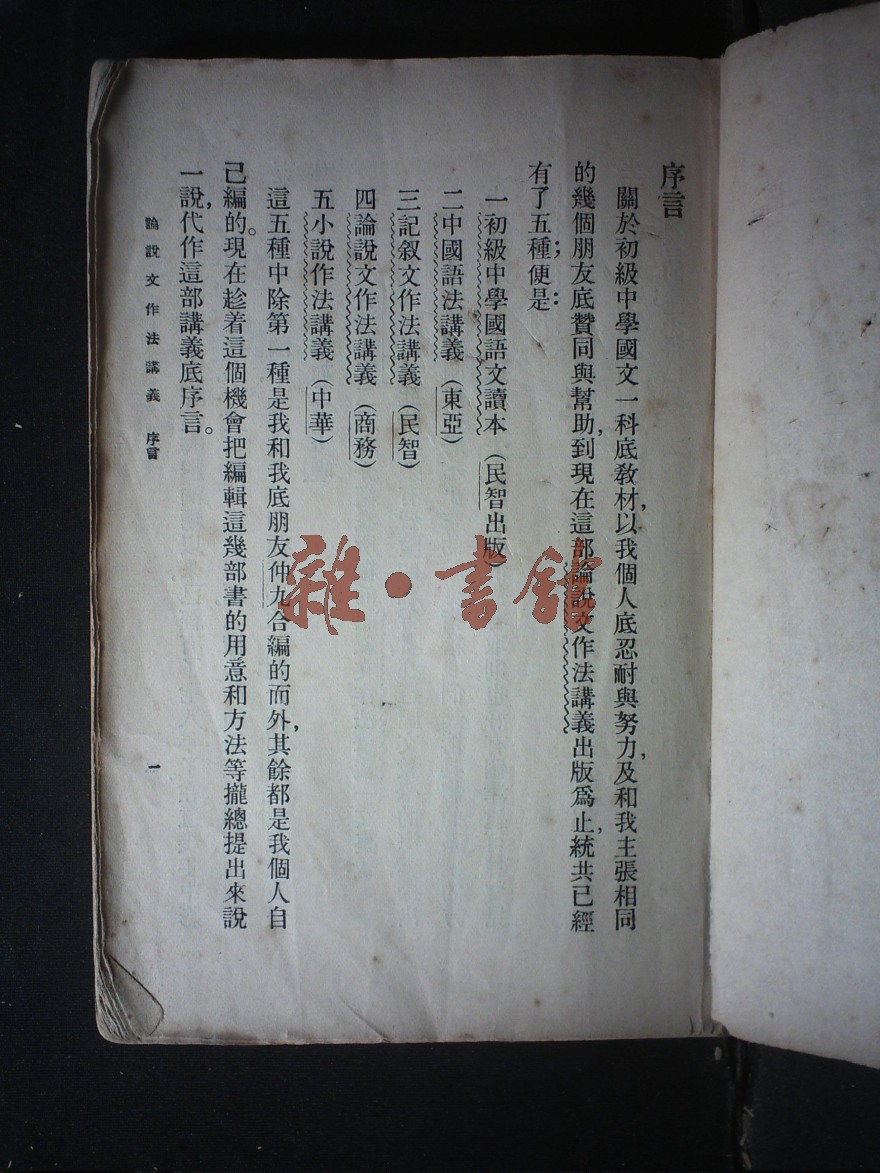 序言
關於初級中學國文一科底教材,以我個人底忍耐與努力,及和我主張相同
的幾個朋友底贊同與幫助,到現在這部論說文作法講義出版爲止,統共已經
有了五種;便是:
一初級中學國語文讀本(民智出版)
二中國語法講義(東亞)
三記叙文作法講義(民智)
四論說文作法講義(商務)
五小說作法講義(中華)
這五種中除第一種是我和我底朋友仲九合編的而外,其餘都是我個人自
己編的。現在趁着這個機會把編輯這幾部書的用意和方法等攏總提出來說
一說,代作這部講義底序言。
論說文作法講義 序言
一
雜·書館